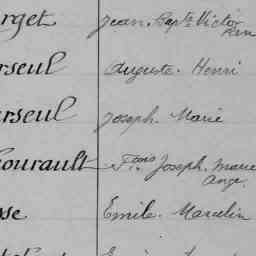 rget Jean. Bapt.te Victor
Pierre
rseul Auguste. Henri
rseul Joseph. Marie
ourault F.cois Joseph. Marie
Ange.
sse Emile. Marcelin